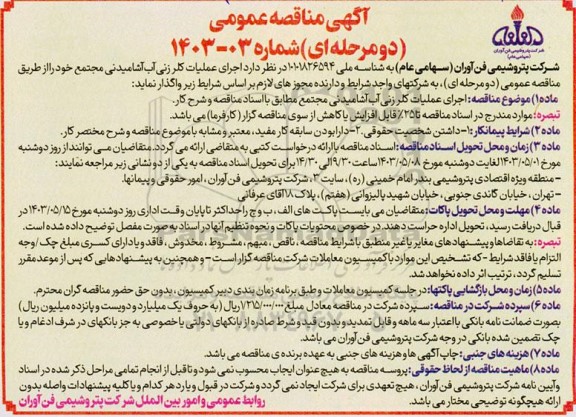 آگهی مناقصه عمومی
(دو مرحله ای) شماره ۰۳-۱۴۰۳
شرکت پتروشیمی فن آوران
(سهامی عام)
شرکت پتروشیمی فن آوران (سهامی عام) به شناسه ملی ۱۰۱۰۱۸۲۶۵۹۴ در نظر دارد اجرای عملیات کلر زنی آب آشامیدنی مجتمع خود را از طریق
مناقصه عمومی (دو مرحله ای)، به شرکتهای واجد شرایط و دارنده مجوز های لازم بر اساس شرایط زیر واگذار نماید:
ماده۱) موضوع مناقصه: اجرای عملیات کلر زنی آب آشامیدنی مجتمع مطابق با اسناد مناقصه و شرح کار.
تبصره: موارد مندرج در اسناد مناقصه تا ۲۵٪ قابل افزایش یا کاهش از سوی مناقصه گزار (کارفرما) می باشد.
ماده ۲) شرایط پیمانکار: ۱-داشتن شخصیت حقوقی ۲-دارا بودن سابقه کار مفید، معتبر و مشابه با موضوع مناقصه و شرح مختصر کار.
ماده ۳) زمان و محل تحویل اسناد مناقصه: اسناد مناقصه با ارائه درخواست کتبی به متقاضی ارائه می گردد. متقاضیان می توانند از روز دوشنبه
مورخ ۱۴۰۳/۰۵/۰۱ لغایت دوشنبه مورخ ۱۴۰۳/۰۵/۰۸ ساعت ۹/۳۰ الی ۱۴/۳۰ برای تحویل اسناد مناقصه به یکی از دو نشانی زیر مراجعه نمایند:
- منطقه ویژه اقتصادی پتروشیمی بندر امام خمینی (ره)، سایت ۳، شرکت پتروشیمی فن آوران، امور حقوقی و پیمانها.
-تهران، خیابان گاندی جنوبی، خیابان شهید پالیزوانی (هفتم)، پلاک ۱۸ آقای عرفانی
ماده ۴) مهلت و محل تحویل پاکات: متقاضیان می بایست پاکت های الف، ب و ج را حداکثر تا پایان وقت اداری روز دوشنبه مورخ ۱۴۰۳/۰۵/۱۵ در
قبال دریافت رسید، تحویل اداره حراست دهند. در خصوص محتویات پاکات و نحوه تنظیم آنها در اسناد بصورت مفصل توضیح داده شده است.
تبصره: به تقاضاها و پیشنهادهای مغایر یا غیر منطبق با شرایط مناقصه، ناقص، مبهم، مشروط، مخدوش، فاقد و یا دارای کسری مبلغ چک /وجه
التزام یا فاقد شرایط - که تشخیص این موارد با کمیسیون معاملات شرکت مناقصه گزار است - و همچنین به پیشنهادهایی که پس از موعد مقرر
تسلیم گردد، ترتیب اثر داده نخواهد شد.
ماده ۵) زمان و محل بازگشایی پاکتها: در جلسه کمیسیون معاملات و طبق برنامه زمان بندی دبیر کمیسیون، بدون حق حضور مناقصه گران محترم.
ماده ۶) سپرده شرکت در مناقصه: سپرده شرکت در مناقصه معادل مبلغ ۱/۲۱۵/۰۰۰/۰۰۰ ریال (به حروف یک میلیارد و دویست و پانزده میلیون ریال)
بصورت ضمانت نامه بانکی با اعتبار سه ماهه و قابل تمدید و بدون قید و شرط صادره از بانکهای دولتی یا خصوصی به جز بانکهای در شرف ادغام و یا
چک تضمین شده بانکی در وجه شرکت پتروشیمی فن آوران می باشد.
ماده ۷) هزینه های جنبی: چاپ آگهی ها و هزینه های جنبی به عهده برنده ی مناقصه می باشد.
ماده۸) ماهیت مناقصه از لحاظ حقوقی: پروسه مناقصه به هیچ عنوان ایجاب محسوب نمی شود و تا قبل از انجام تمامی مراحل ذکر شده در اسناد
و آیین نامه شرکت پتروشیمی فن آوران، هیچ تعهدی برای شرکت ایجاد نمی گردد و شرکت در قبول و یا رد هر کدام و یا کلیه پیشنهادات واصله بدون
ارائه هیچگونه توضیحی مختار می باشد.
روابط عمومی و امور بین الملل شرکت پتروشیمی فن آوران